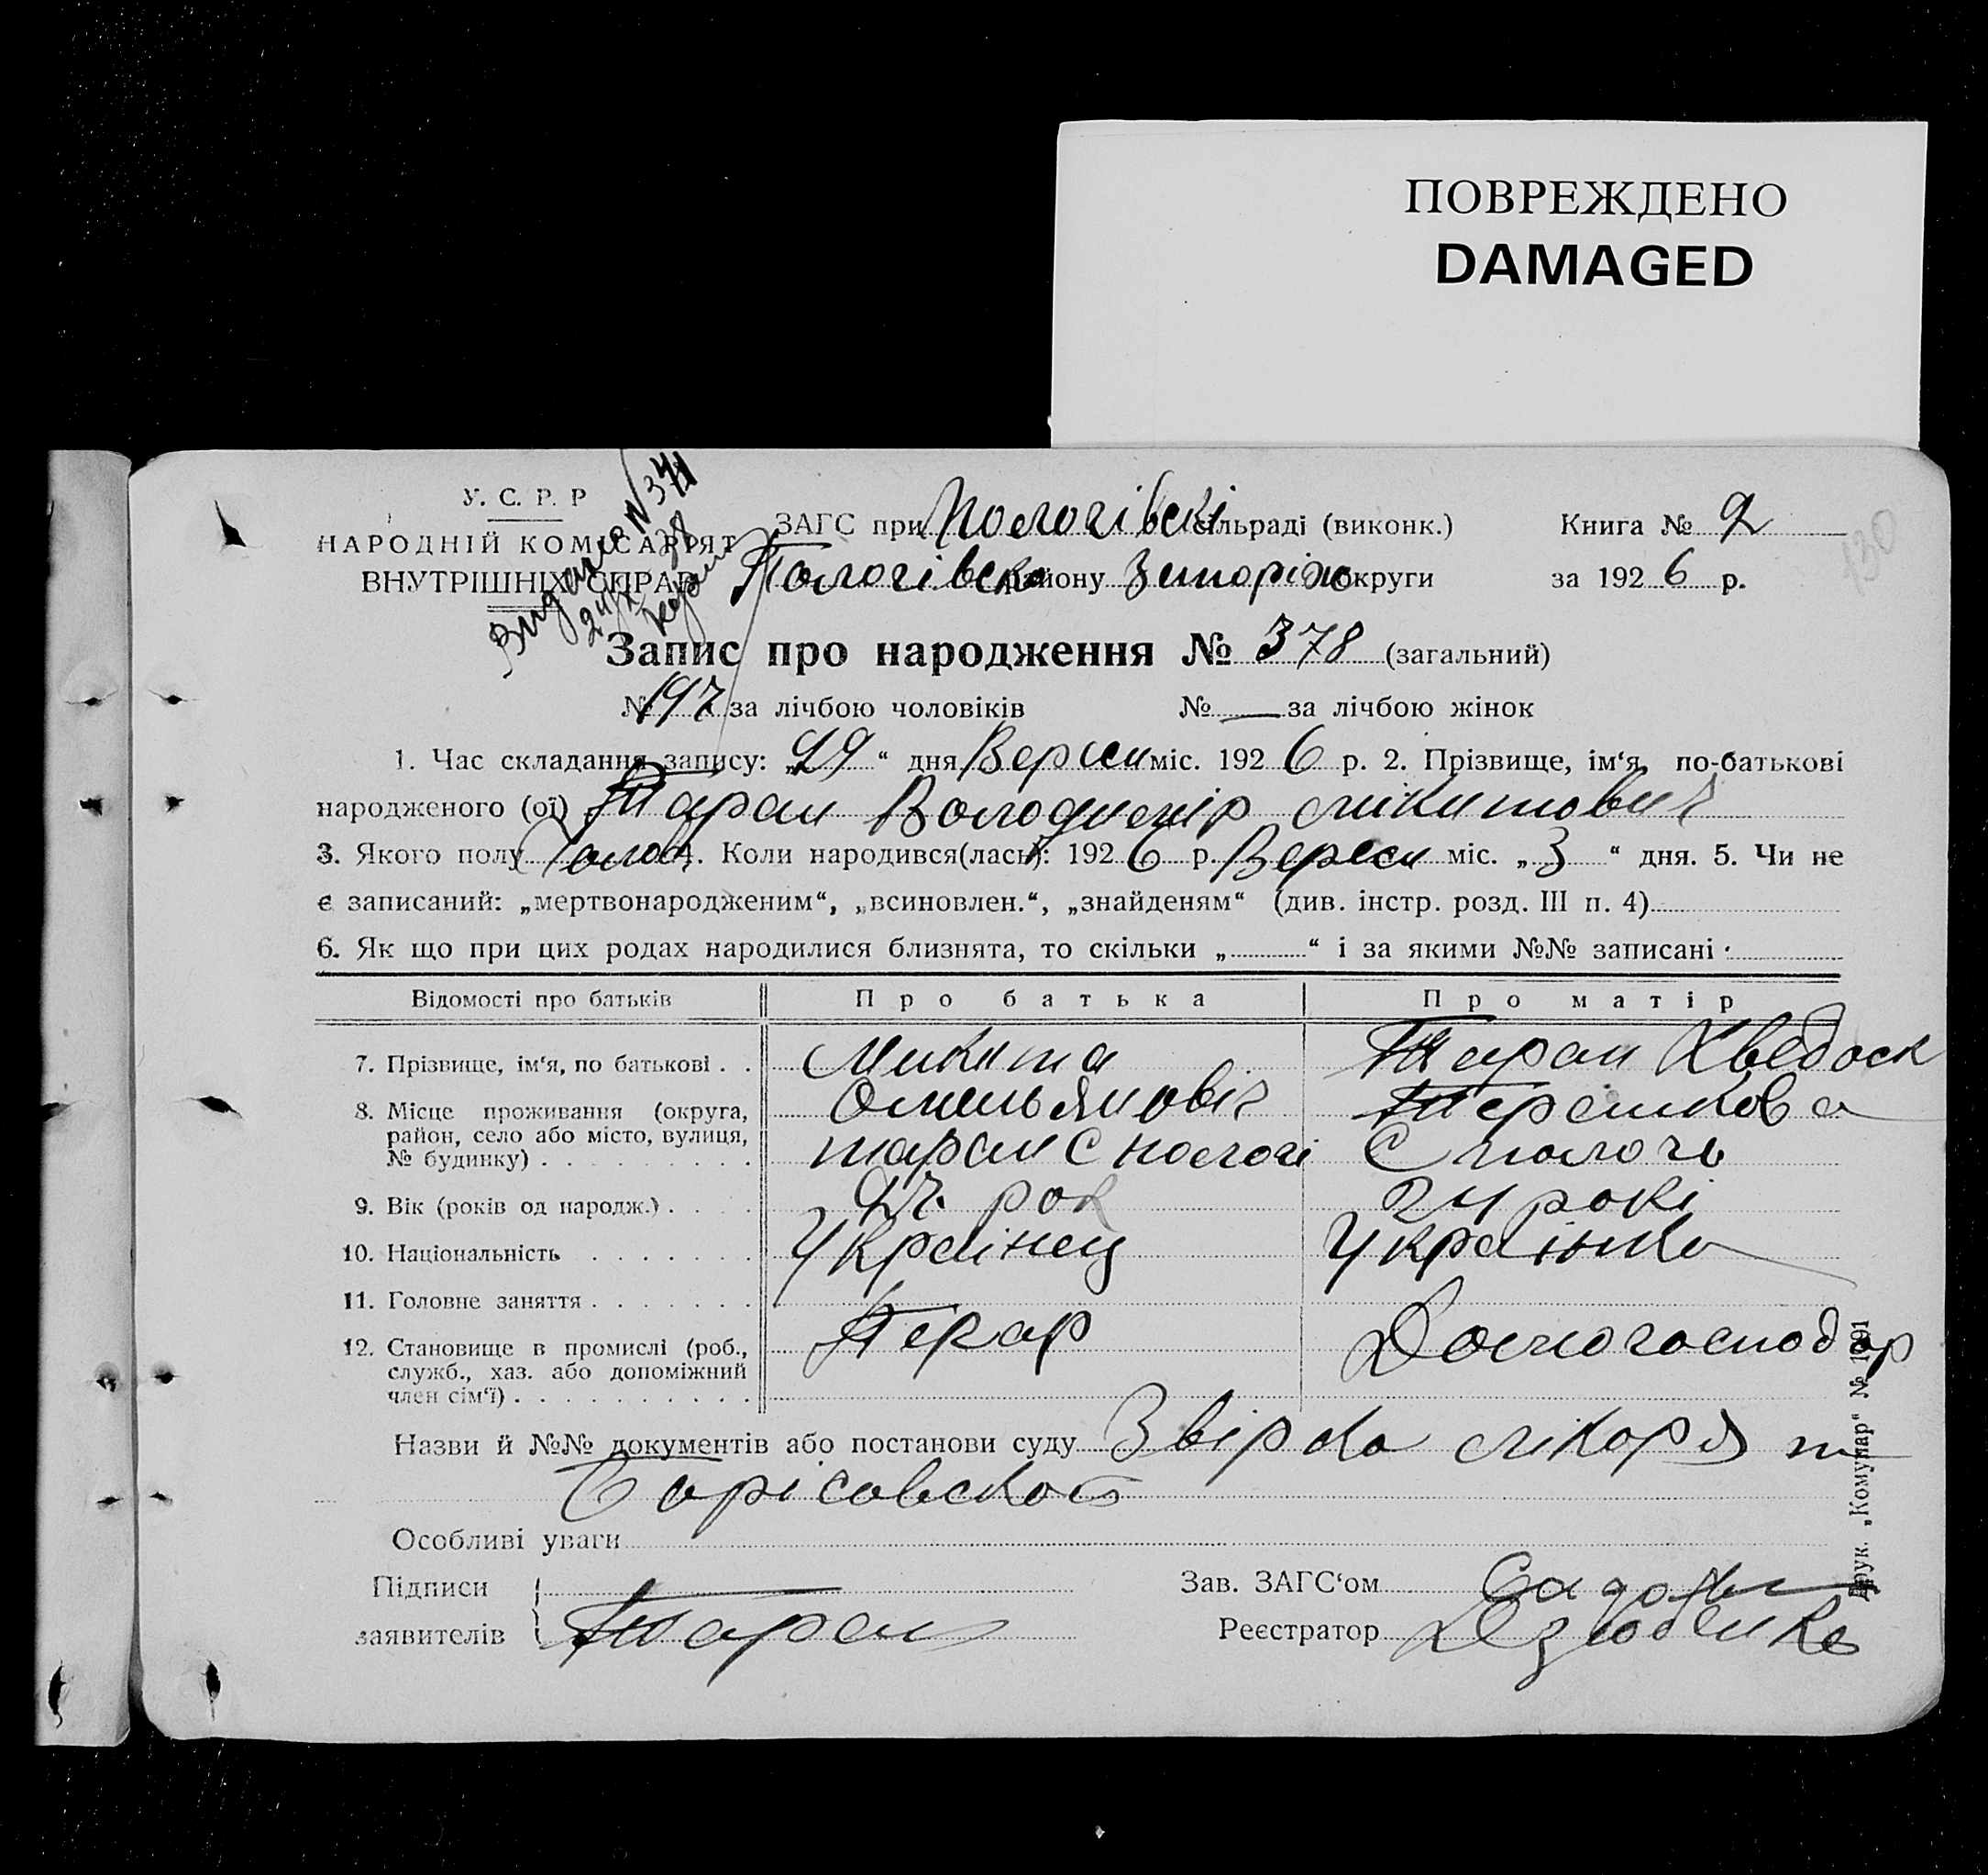 ПОВРЕЖДЕНО
DAMAGED
У. С. Р. Р
НАРОДНІЙ КОМІСАРІЯТ
ВНУТРІШНІХ СПРАВ
Видано № 371
ЗАГС при Пологівскі сільраді (виконк.) Книга № 2
Пологівсько району Запоріж округи за 1926 р.
130
Запис про народження № 378 (загальний)
№ 197 за лічбою чоловіків № — за лічбою жінок
1. Час складання запису: „29“ дня Вересн міс. 1926 р. 2. Прізвище, ім‘я, по-батькові
народженого (ої) Таран Володимір Мікитович
3. Якого полу Чолов 4. Коли народився(лась): 1926 р. Вересн міс. „3“ дня. 5. Чи не
є записаний: „мертвонародженим“, „всиновлен.“, „знайденям“ (див. інстр. розд. III п. 4)
6. Як що при цих родах народилися близнята, то скільки „ “ і за якими №№ записані
Відомості про батьків Про батька Про матір
7. Прізвище, ім‘я, по батькові . . Микита Таран Хведоск
8. Місце проживання (округа, район, село або місто, вулиця, № будинку) . Омельяновіч Терешкова
таран С пологі С пологи
9. Вік (років од народж.) . . . . 27. рок 24 рокі
10. Національність Українец Українка
11. Головне заняття
Пекар Домогосподар
12. Становище в промислі (роб., служб., хаз. або допоміжний член сім‘ї)
Назви й №№ документів або постанови суду Звірка лікаря
Борісовской
Особливі уваги
Підписи заявителів Таран
Зав. ЗАГС‘ом
Реєстратор Дзюбенко
Друк. „Комунар“ № 1091